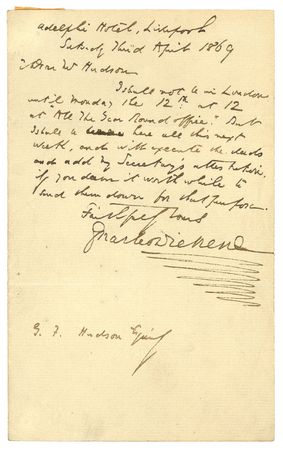 Adelphi Hotel, Liverpool
Saturday Third April 1869
My Dear Mr Hudson
I shall not be in London
until Monday the 12th. at 12
at "All The Year Round office." But
I shall be here all this next
week, and will execute the deeds
and add my Secretary's attestation,
if you deem it worth while to
send them down for that purpose.
Faithfully Yours
Charles Dickens
G. F. Hudson Esquire